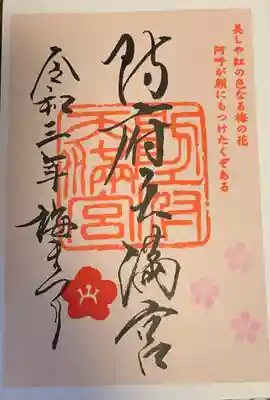 美しや紅の色なる梅の花
阿呼が顔にもつけたくぞある
防府天満宮
防府
天満宮
令和三年 梅まつり